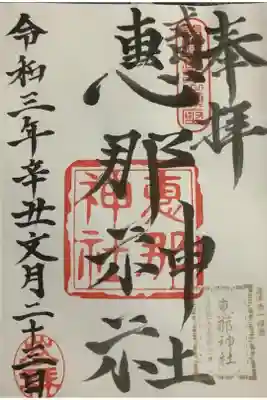 奉拝
恵那神社
恵那
神社
恵那神社
令和三年辛丑文月二十三日